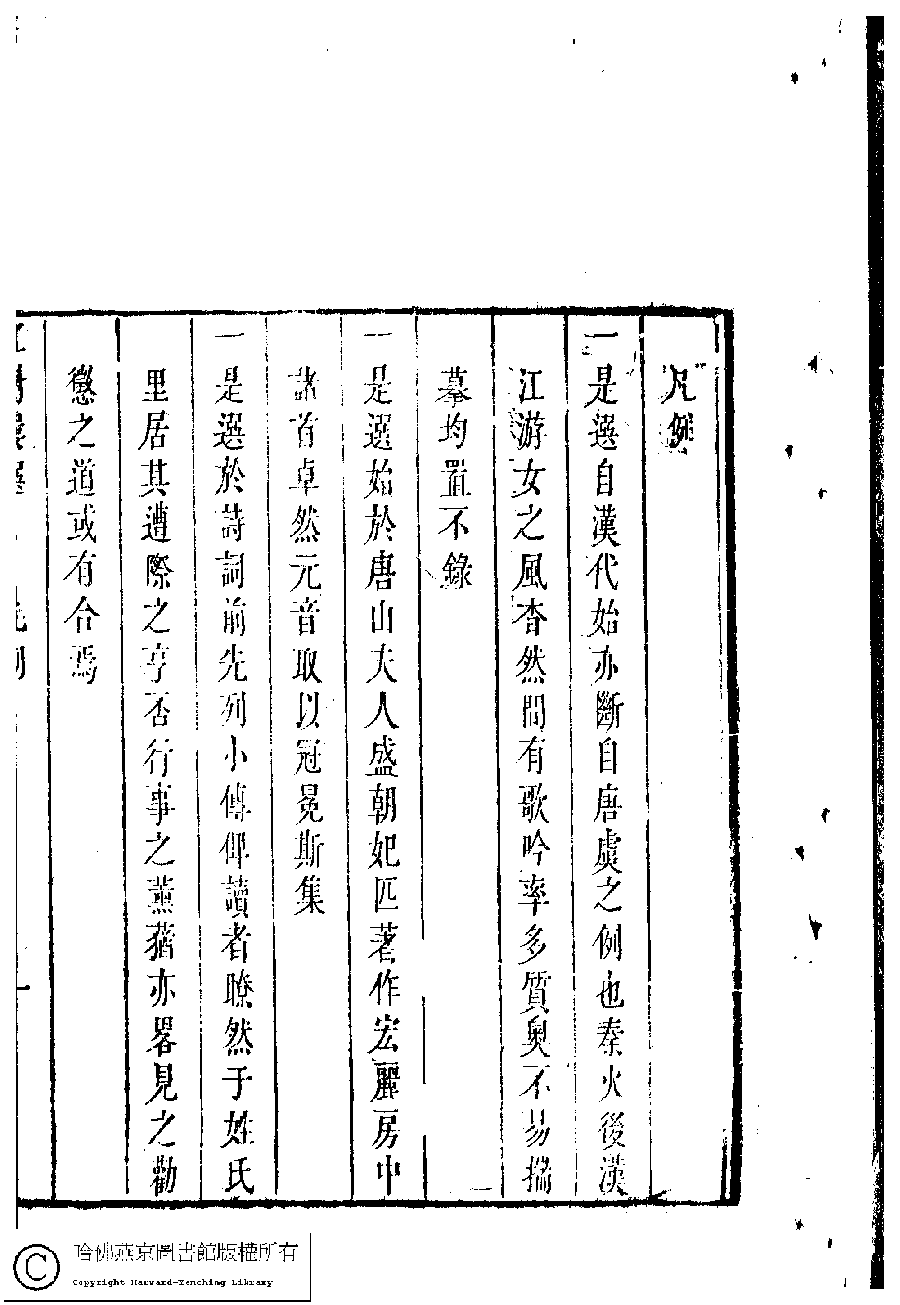 凡例
一是選自漢代始亦斷自唐虞之例也秦火後漢
江游女之風杳然間有歌吟率多質奧不易揣
摹均置不錄
一是選始於唐山夫人盛朝妃匹著作宏麗房中
諸首卓然元音取以冠冕斯集
一是選於詩詞前先列小傳俾讀者瞭然于姓氏
里居其遭際之亨否行事之薰蕕亦畧見之勸
懲之道或有合焉
一
哈佛燕京圖書館版權所有
Copyright Harvard-Yenching Library